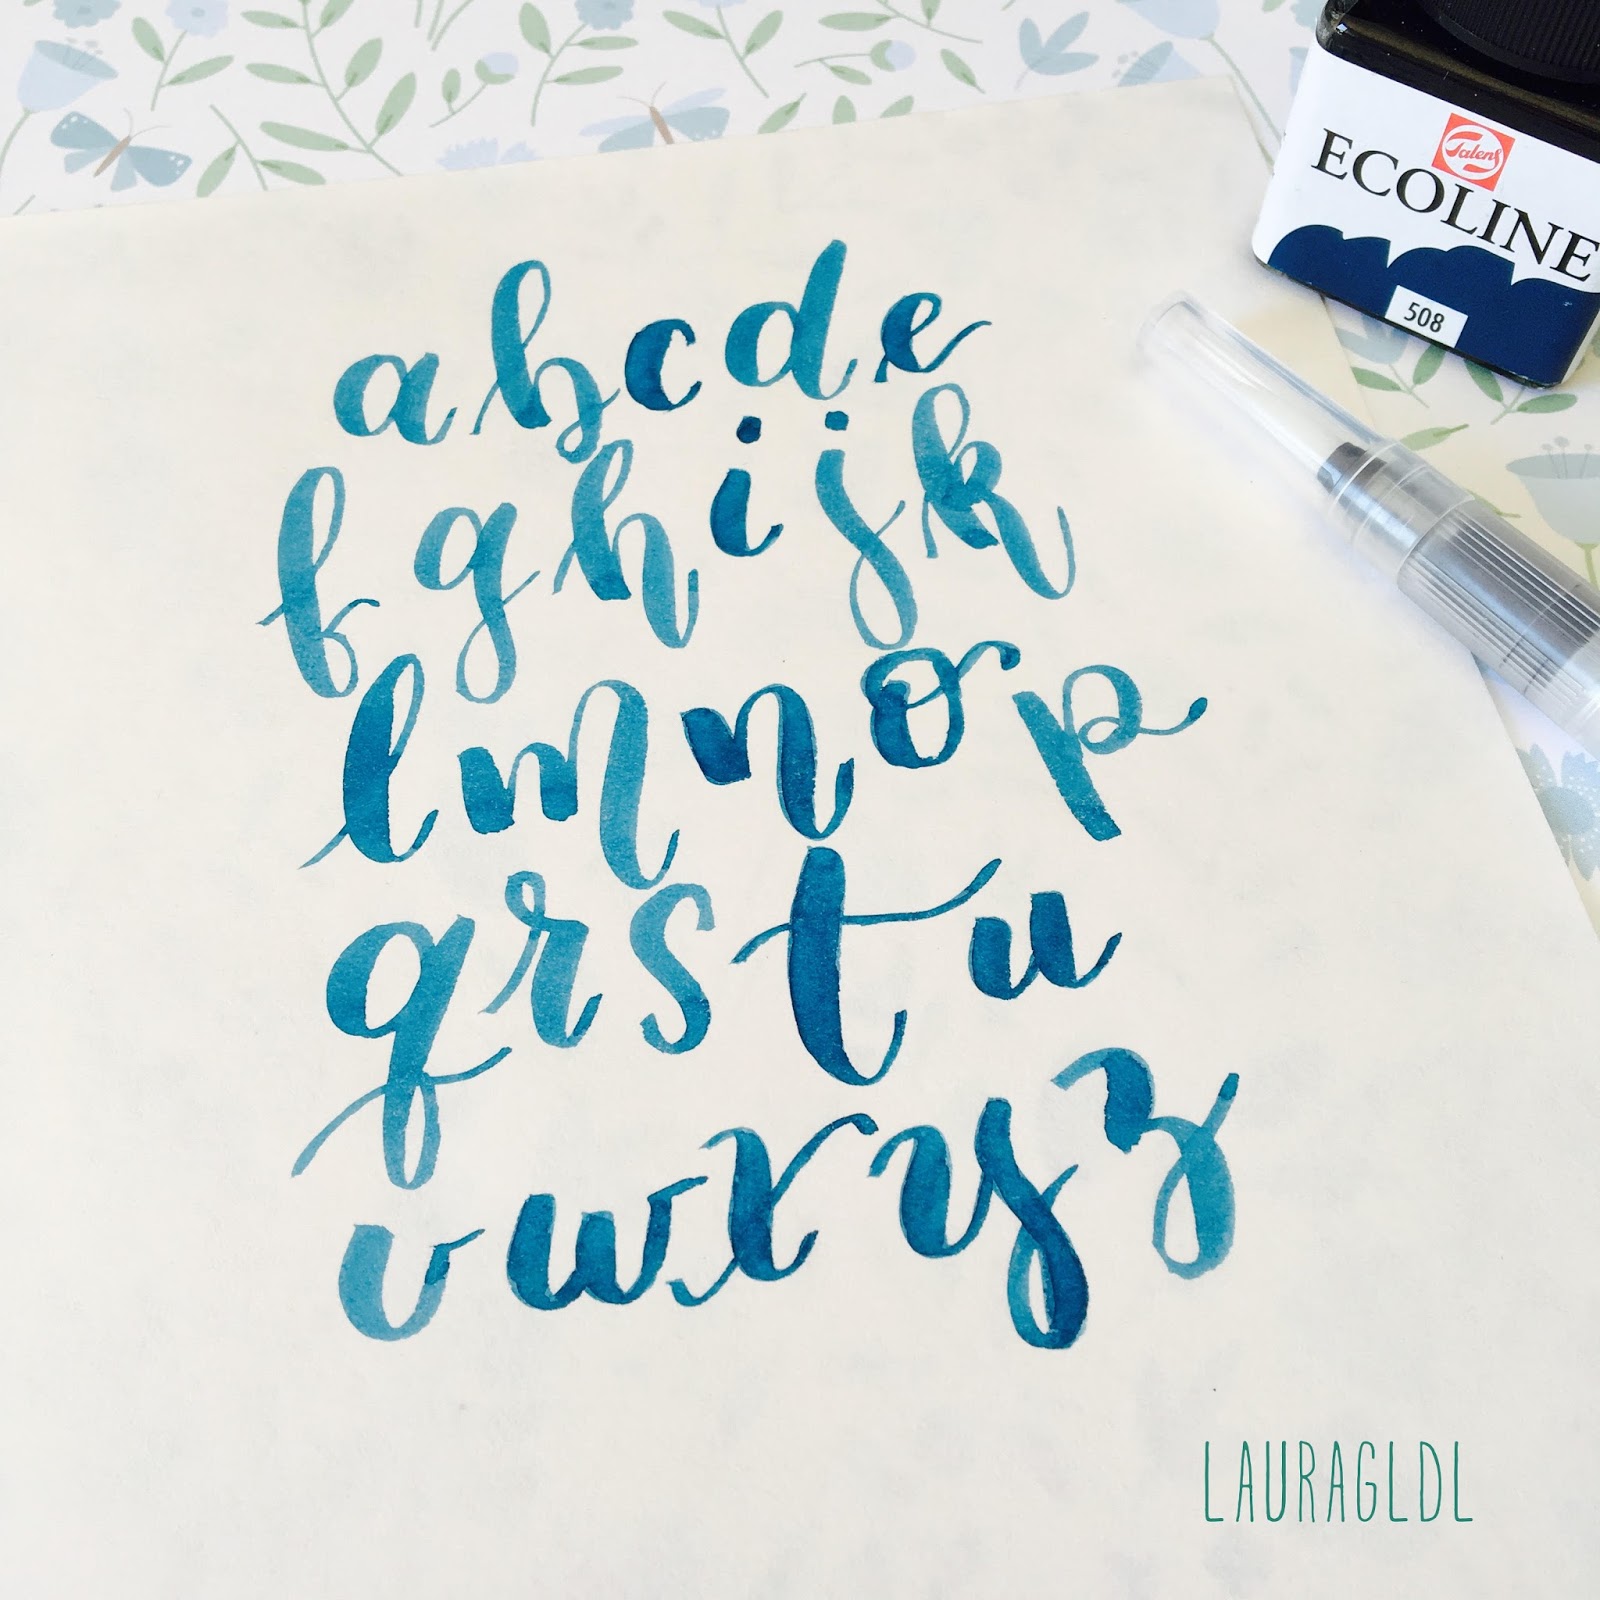 Talens
ECOLINE
508
abcde
fghijk
lmnop
qrstu
vwxyz
LAURAGLDL